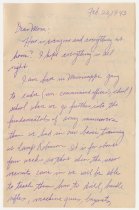 Feb 22, 1943
Dear Mom:
How is everyone and everything at
home? I hope everything is all
right.
I am here in Mississippi going
to cadre (non commissioned officers) school
school where we go further into the
fundamentals of army maneuvers
than we had in our basic training
at Camp Robinson. It is for about
four weeks so that when the new
recruits come in we will be able
to teach them how to drill, handle
rifles, machine guns, bayonets,